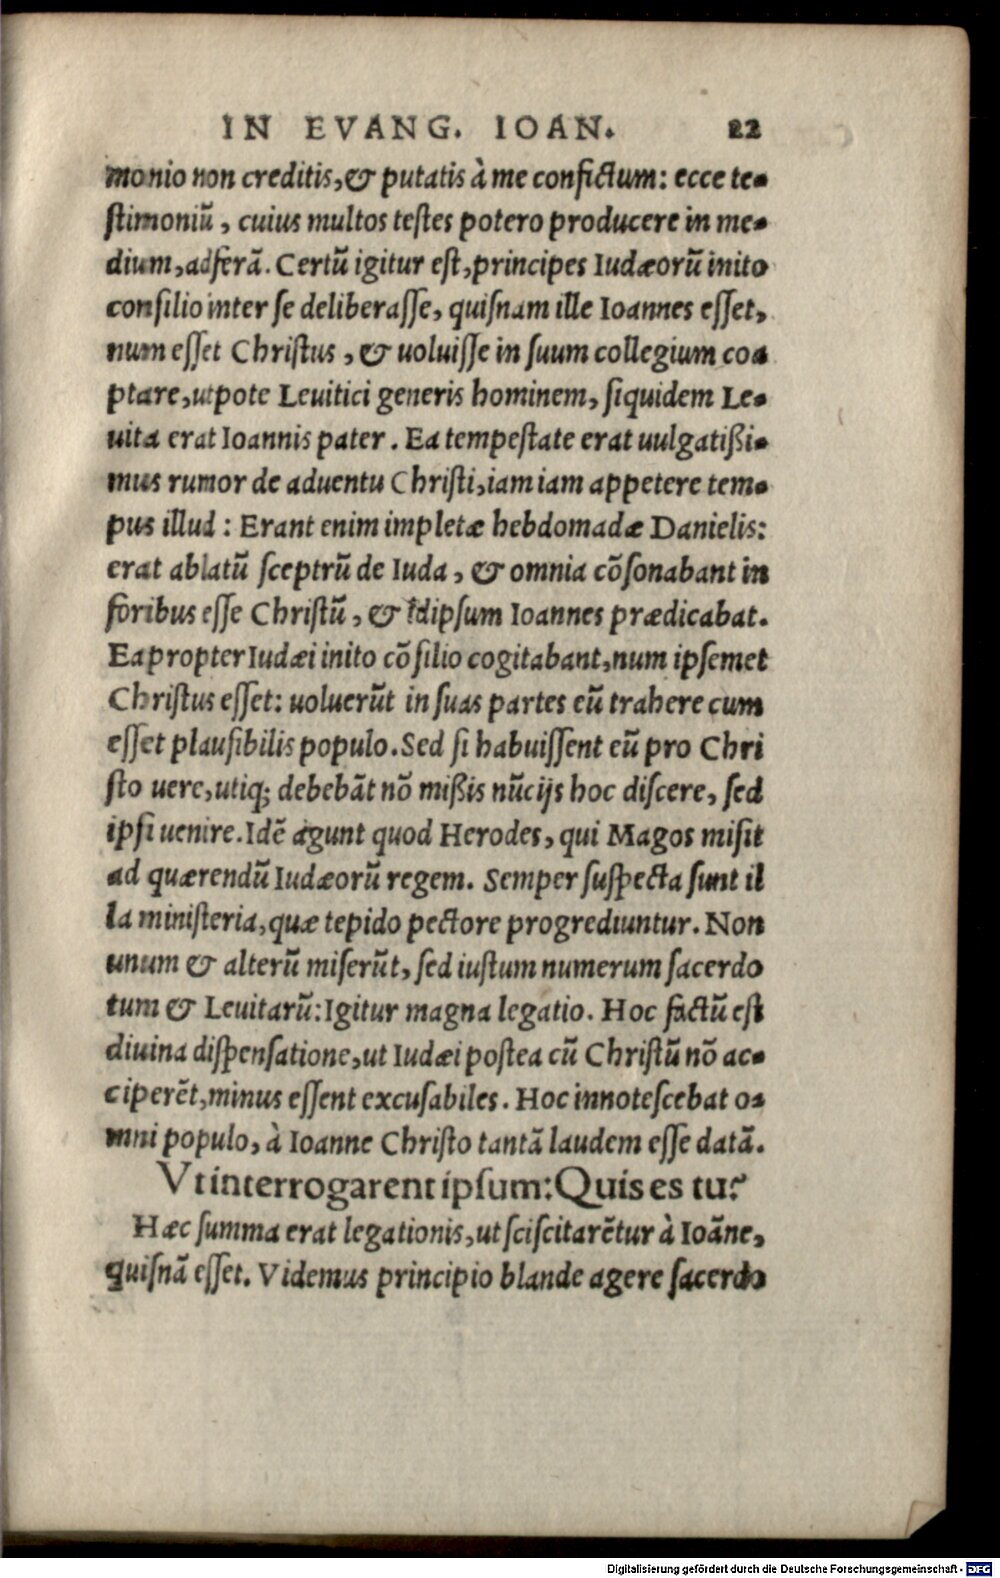 IN EVANG. IOAN. 22
monio non creditis, & putatis à me confictum: ecce te-
stimoniũ, cuius multos testes potero producere in me-
dium, adferã. Certũ igitur est, principes Iudæorũ inito
consilio inter se deliberasse, quisnam ille Ioannes esset,
num esset Christus, & uoluisse in suum collegium coa
ptare, utpote Leuitici generis hominem, siquidem Le-
uita erat Ioannis pater. Ea tempestate erat uulgatißi-
mus rumor de aduentu Christi, iam iam appetere tem-
pus illud: Erant enim impletæ hebdomadæ Danielis:
erat ablatũ sceptrũ de Iuda, & omnia cõsonabant in
foribus esse Christũ, & idipsum Ioannes prædicabat.
Eapropter Iudæi inito cõsilio cogitabant, num ipsemet
Christus esset: uoluerũt in suas partes eũ trahere cum
esset plausibilis populo. Sed si habuissent eũ pro Chri
sto uere, utiq; debebãt nõ mißis nũcijs hoc discere, sed
ipsi uenire. Idẽ agunt quod Herodes, qui Magos misit
ad quærendũ Iudæorũ regem. Semper suspecta sunt il
la ministeria, quæ tepido pectore progrediuntur. Non
unum & alterũ miserũt, sed iustum numerum sacerdo
tum & Leuitarũ: Igitur magna legatio. Hoc factũ est
diuina dispensatione, ut Iudæi postea cũ Christũ nõ ac-
ciperẽt, minus essent excusabiles. Hoc innotescebat o-
mni populo, à Ioanne Christo tantã laudem esse datã.
Vt interrogarent ipsum: Quis es tu?
Hæc summa erat legationis, ut sciscitarẽtur à Ioãne,
quisnã esset. Videmus principio blande agere sacerdo
Digitalisierung gefördert durch die Deutsche Forschungsgemeinschaft - DFG